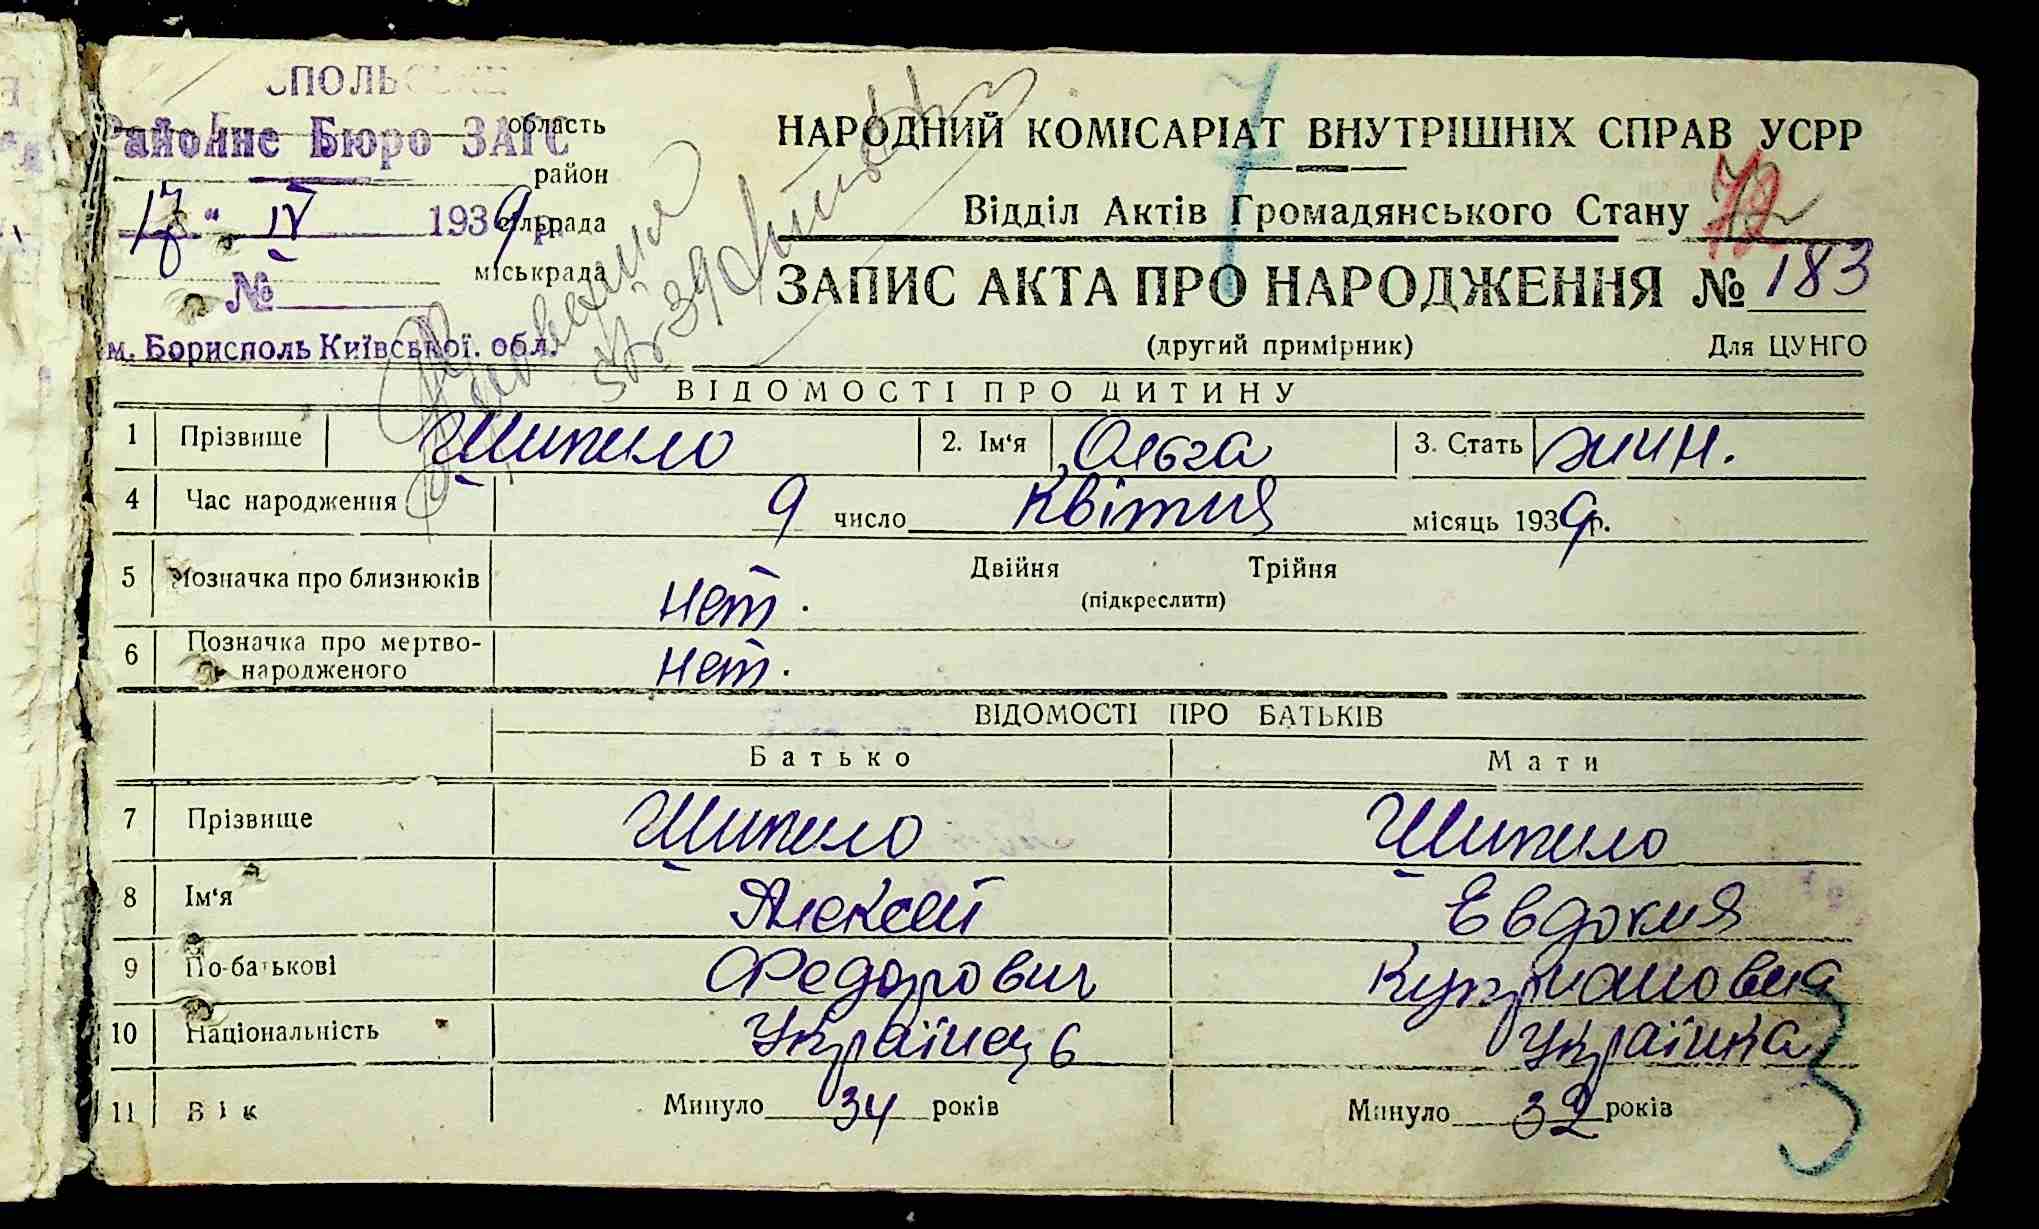 область
Районне Бюро ЗАГС
район
17 " IV 1939 р.
сільрада
міськрада
№
м. Борисполь Київської. обл.
НАРОДНИЙ КОМІСАРІАТ ВНУТРІШНІХ СПРАВ УСРР
7
Відділ Актів Громадянського Стану 72
ЗАПИС АКТА ПРО НАРОДЖЕННЯ № 183
(другий примірник) Для ЦУНГО
ВІДОМОСТІ ПРО ДИТИНУ
1 Прізвище Шипило 2. Ім'я Ольга 3. Стать жін.
4 Час народження 9 число Квітня місяць 1939 р.
5 Позначка про близнюків нет. Двійня Трійня
(підкреслити)
6 Позначка про мертво-
народженого нет.
ВІДОМОСТІ ПРО БАТЬКІВ
Батько Мати
7 Прізвище Шипило Шипило
8 Ім'я Алексей Евдокия
9 По-батькові Федорович Куприановна
10 Національність Українець Українка
11 Вік Минуло 34 років Минуло 32 років